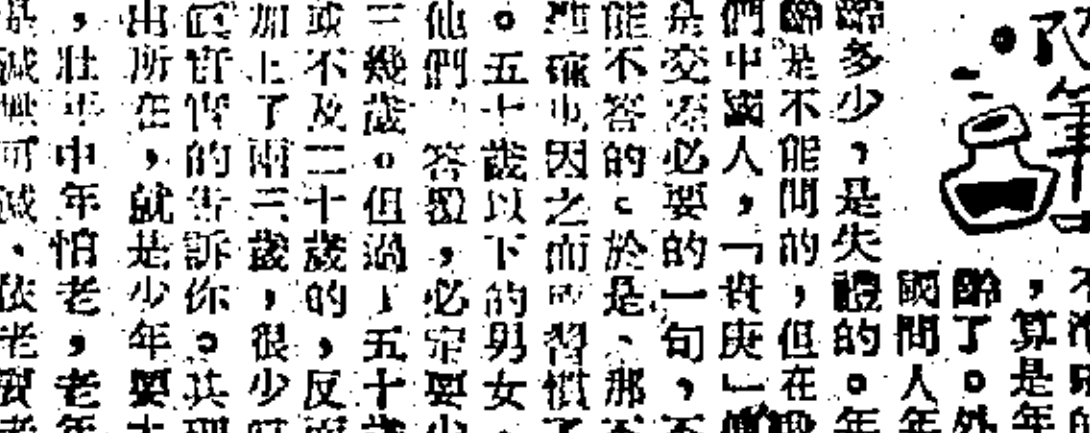 筆
，算是年
齡了。外
國問人年
齡多少，是失體的。年
齡是不能問的，但在
們中國人，「貴庚」
是交際必要的一句，不
能不答的。於是、那
因之而成習慣了
。五十歲以下的男女，
他們一答覆，必定要少
三幾歲。但過了五十歲
或不及二十歲的，反而
加上了兩三歲，很少
的告訴你。其理
出所在，就是少年要大
，壯年中年怕老，老年
是減無可減、依老賣老